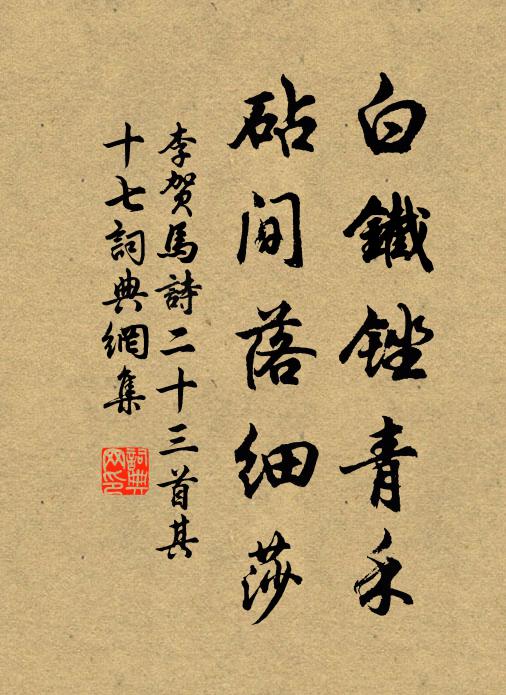 白鐵銼青禾
砧間落細莎
李賀馬詩二十三首其
十七詞典網集
詞典
网印